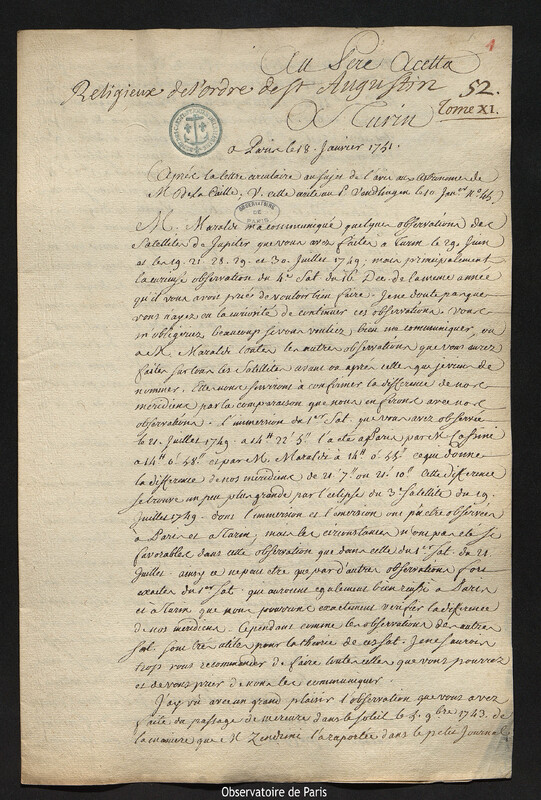 1
Au Pere Accetta
Religieux de l'ordre de St Augustin
52.
A Turin
Tome XI.
a Paris le 18. Janvier 1751.
Après la lettre circulaire au sujet de l'avis aux astronomes de
M. De la Caille. V. celle ecrite au P. Vendlingen le 10 Janer. No. 46
OBSERVATOIRE DE PARIS
M. Maraldi m'a communiqué quelques observations des
Satellites de Jupiter que vous avez faites a Turin le 29. Juin
et les 19. 21. 28. 29. et 30. Juillet 1749, mais principalement
la curieuse observation du 4e Sat. du 16 Dec. de la meme année
qu'il vous avoit prié de vouloir bien faire. Je ne doute pas que
vous n'ayez eu la curiosité de continuer ces observations. Vous
m'obligeriez beaucoup si vous vouliez bien me communiquer, ou
a M. Maraldi toutes les autres observations que vous aurez
faites sur tous les Satellites avant ou après celles que je viens de
nommer. Elles nous serviront à confirmer la différence de nos
meridiens par la comparaison que nous en ferons avec nos
observations. L'immersion du 1er Sat. que vous avez observée
le 21. Juillet 1749. a 14h 22' 5" l'a été a Paris par M. Cassini
a 14h 0' 58" et par M. Maraldi à 14h 0' 55" ce qui donne
la difference de nos meridiens de 21' 7" ou 21' 10". Cette difference
se trouve un peu plus grande par l'eclipse du 3e Satellite du 19
Juillet 1749. dont l'immersion et l'emersion ont pu etre observées
a Paris et a Turin, mais les circonstances n'ont pas eté si
favorables dans cette observation que dans celle du 1er Sat. du 21.
Juillet. ainsy ce ne peut etre que par d'autres observations fort
exactes du 1er Sat. qui auront egalement bien reussi a Paris
et a Turin que nous pourrons exactement verifier la difference
de nos meridiens. Cependant comme les observations des autres
Sat. sont tres utiles pour la théorie de ces Sat. Je ne saurois
trop vous recommander de faire toutes celles que vous pourrez
et de vous prier de nous les communiquer.
J'ay vû avec un grand plaisir l'observation que vous avez
faite du passage de mercure dans le soleil le 5. 9bre 1743. de
la maniere que M. Zendrini l'a raportée dans le petit Journal
Observatoire de Paris